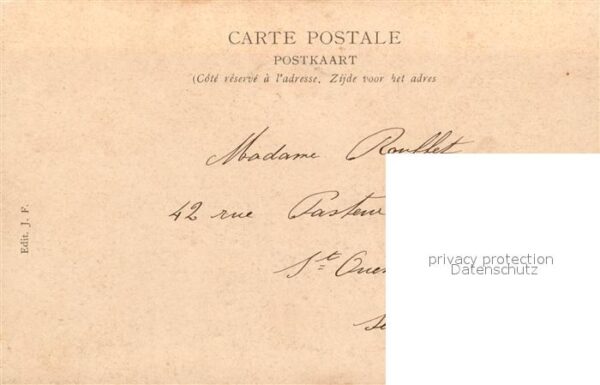 CARTE POSTALE
POSTKAART
(Côté réservé à l'adresse. Zijde voor het adres
Madame Roullet
42 rue Pasteur
St Ouen
Edit. J. F.
privacy protection
Datenschutz